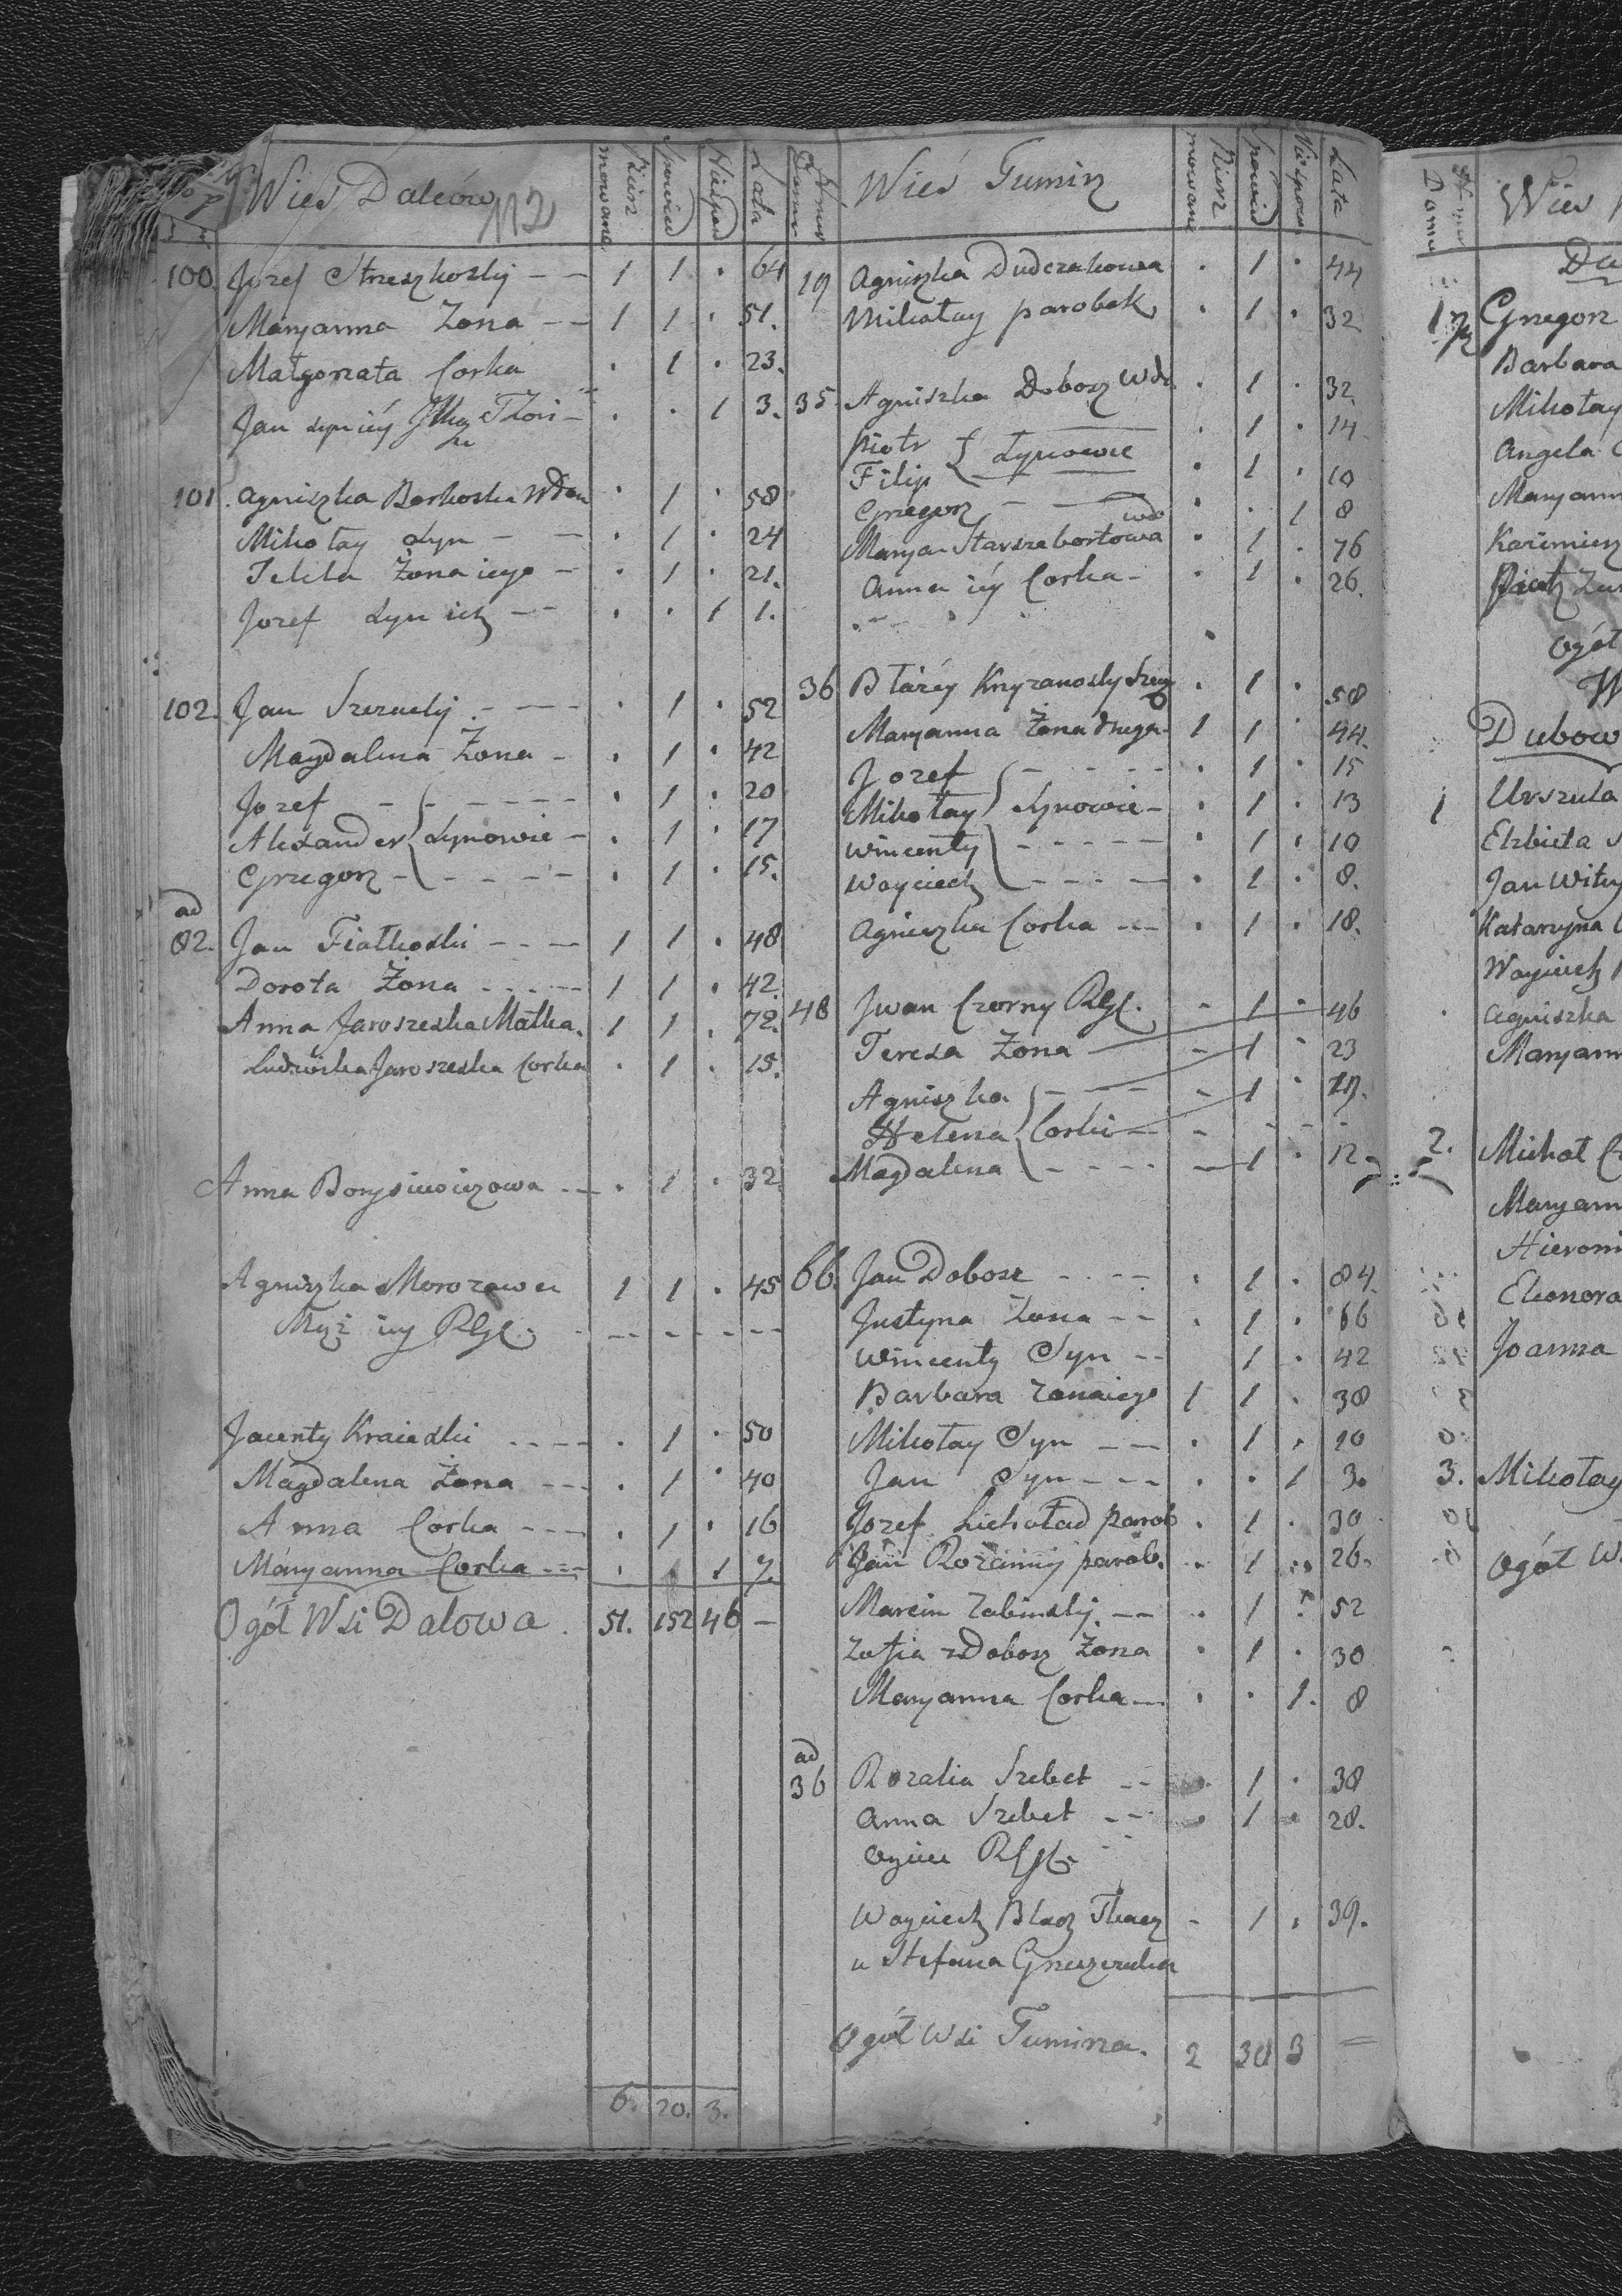 Wieś Daleów
112
Bierz
mowane
Spowied
Niespow
Lata
100. Jozef Streszkoskij - - 1 1 . 64
Maryanna Zona - - 1 1 . 51.
Małgorzata Corka . 1 . 23.
Jan syn iey . . 1 3.
101. Agniszka Borkoska Wdow . 1 . 58
Mikołay Syn - - . 1 . 24
Tekla Żona iego - . 1 . 21.
Jozef Syn ich - - . . 1 1.
102. Jan - - - . 1 . 52
Magdalena Zona - . 1 . 42
Jozef - - - - - - . 1 . 20
Alexander Synowie - . 1 . 17
Grzegorz - - - - - . 1 . 15.
ad
82. Jan Fiałkoski - - - 1 1 . 48
Dorota Żona - - - - 1 1 . 42.
Anna Jaroszeska Matka. 1 1 . 72.
Ludwika Jaroszeska Corka . 1 . 15.
Anna Borysiewiczowa - - . 1 . 32
Agniszka Morozowa 1 1 . 45
Mąż iey RGL. - - - - - -
Jacenty Kraieski - - - - . 1 . 50
Magdalena Żona - - - . 1 . 40
Anna Corka - - - - . 1 . 16
Maryanna Corka - - - . . 1 7.
Ogół Wsi Dalowa. 51. 152 46 -
6. 20. 3.
Nmer
Domu
Wieś Tumirz
Bierz
mowane
Spowied
Niespow
Lata
19 Agniszka Dudczakowa . 1 . 44
Mikołay parobek . 1 . 32
35. Agniszka Dobosz Wd. . 1 . 32
Piotr . 1 . 14
Synowie
Filip . 1 . 10
Grzegorz - - . . 1 8
Marya Starszebortowa wd . 1 . 76
Anna iey Corka - . 1 . 26.
36 Błażey Kryzanosky . 1 . 58
Maryanna Żona druga - 1 1 . 44.
Jozef - - - - . 1 . 15
Mikołay Synowie - . 1 . 13
Wincenty - - - - - . 1 . 10
Woyciech - - - - . 1 . 8.
Agnieszka Corka - - - . 1 . 18.
48 Jwan Czorny RGL. - 1 . 46
Teresa Zona - 1 . 23
Agniszka - - - - 1 .
Helena Corki - - - - -
Magdalena - - - - - 1 . 12
66. Jan Dobosz - - - - . 1 . 84.
Justyna Zona - - . 1 . 66
Wincenty Syn - - 1 . 42
Barbara Zona iego 1 1 . 38
Mikołay Syn - - - . 1 . 20
Jan Syn - - - . . 1 3.
Jozef Lichoład parob . 1 . 30
Jan parob. . 1 . 26.
Marcin Zabinskij - - . 1 . 52
Zofia z Dobosz Żona . 1 . 30
Maryanna Corka - - . . 1. 8
ad
36 Rozalia Szebet - - . 1 . 38
Anna Szebet - - - . 1 . 28.
Oyciec RGL.
Woyciech Tkacz - 1 . 39.
u Stefana
Ogół Wsi Tumirza. 2 30 3 =
Nmer
Domu
Wieś
1 Grzegorz
Barbara
Mikołay
Angela
Maryann
Kazimierz
Ogół
W
Dubow
1 Urszula
Elzbieta
Jan
Katarzyna
Woyciech
Agniszka
Maryann
2. Michał
Maryann
Hieroni
Eleonora
Joanna
3. Mikołay
Ogół W